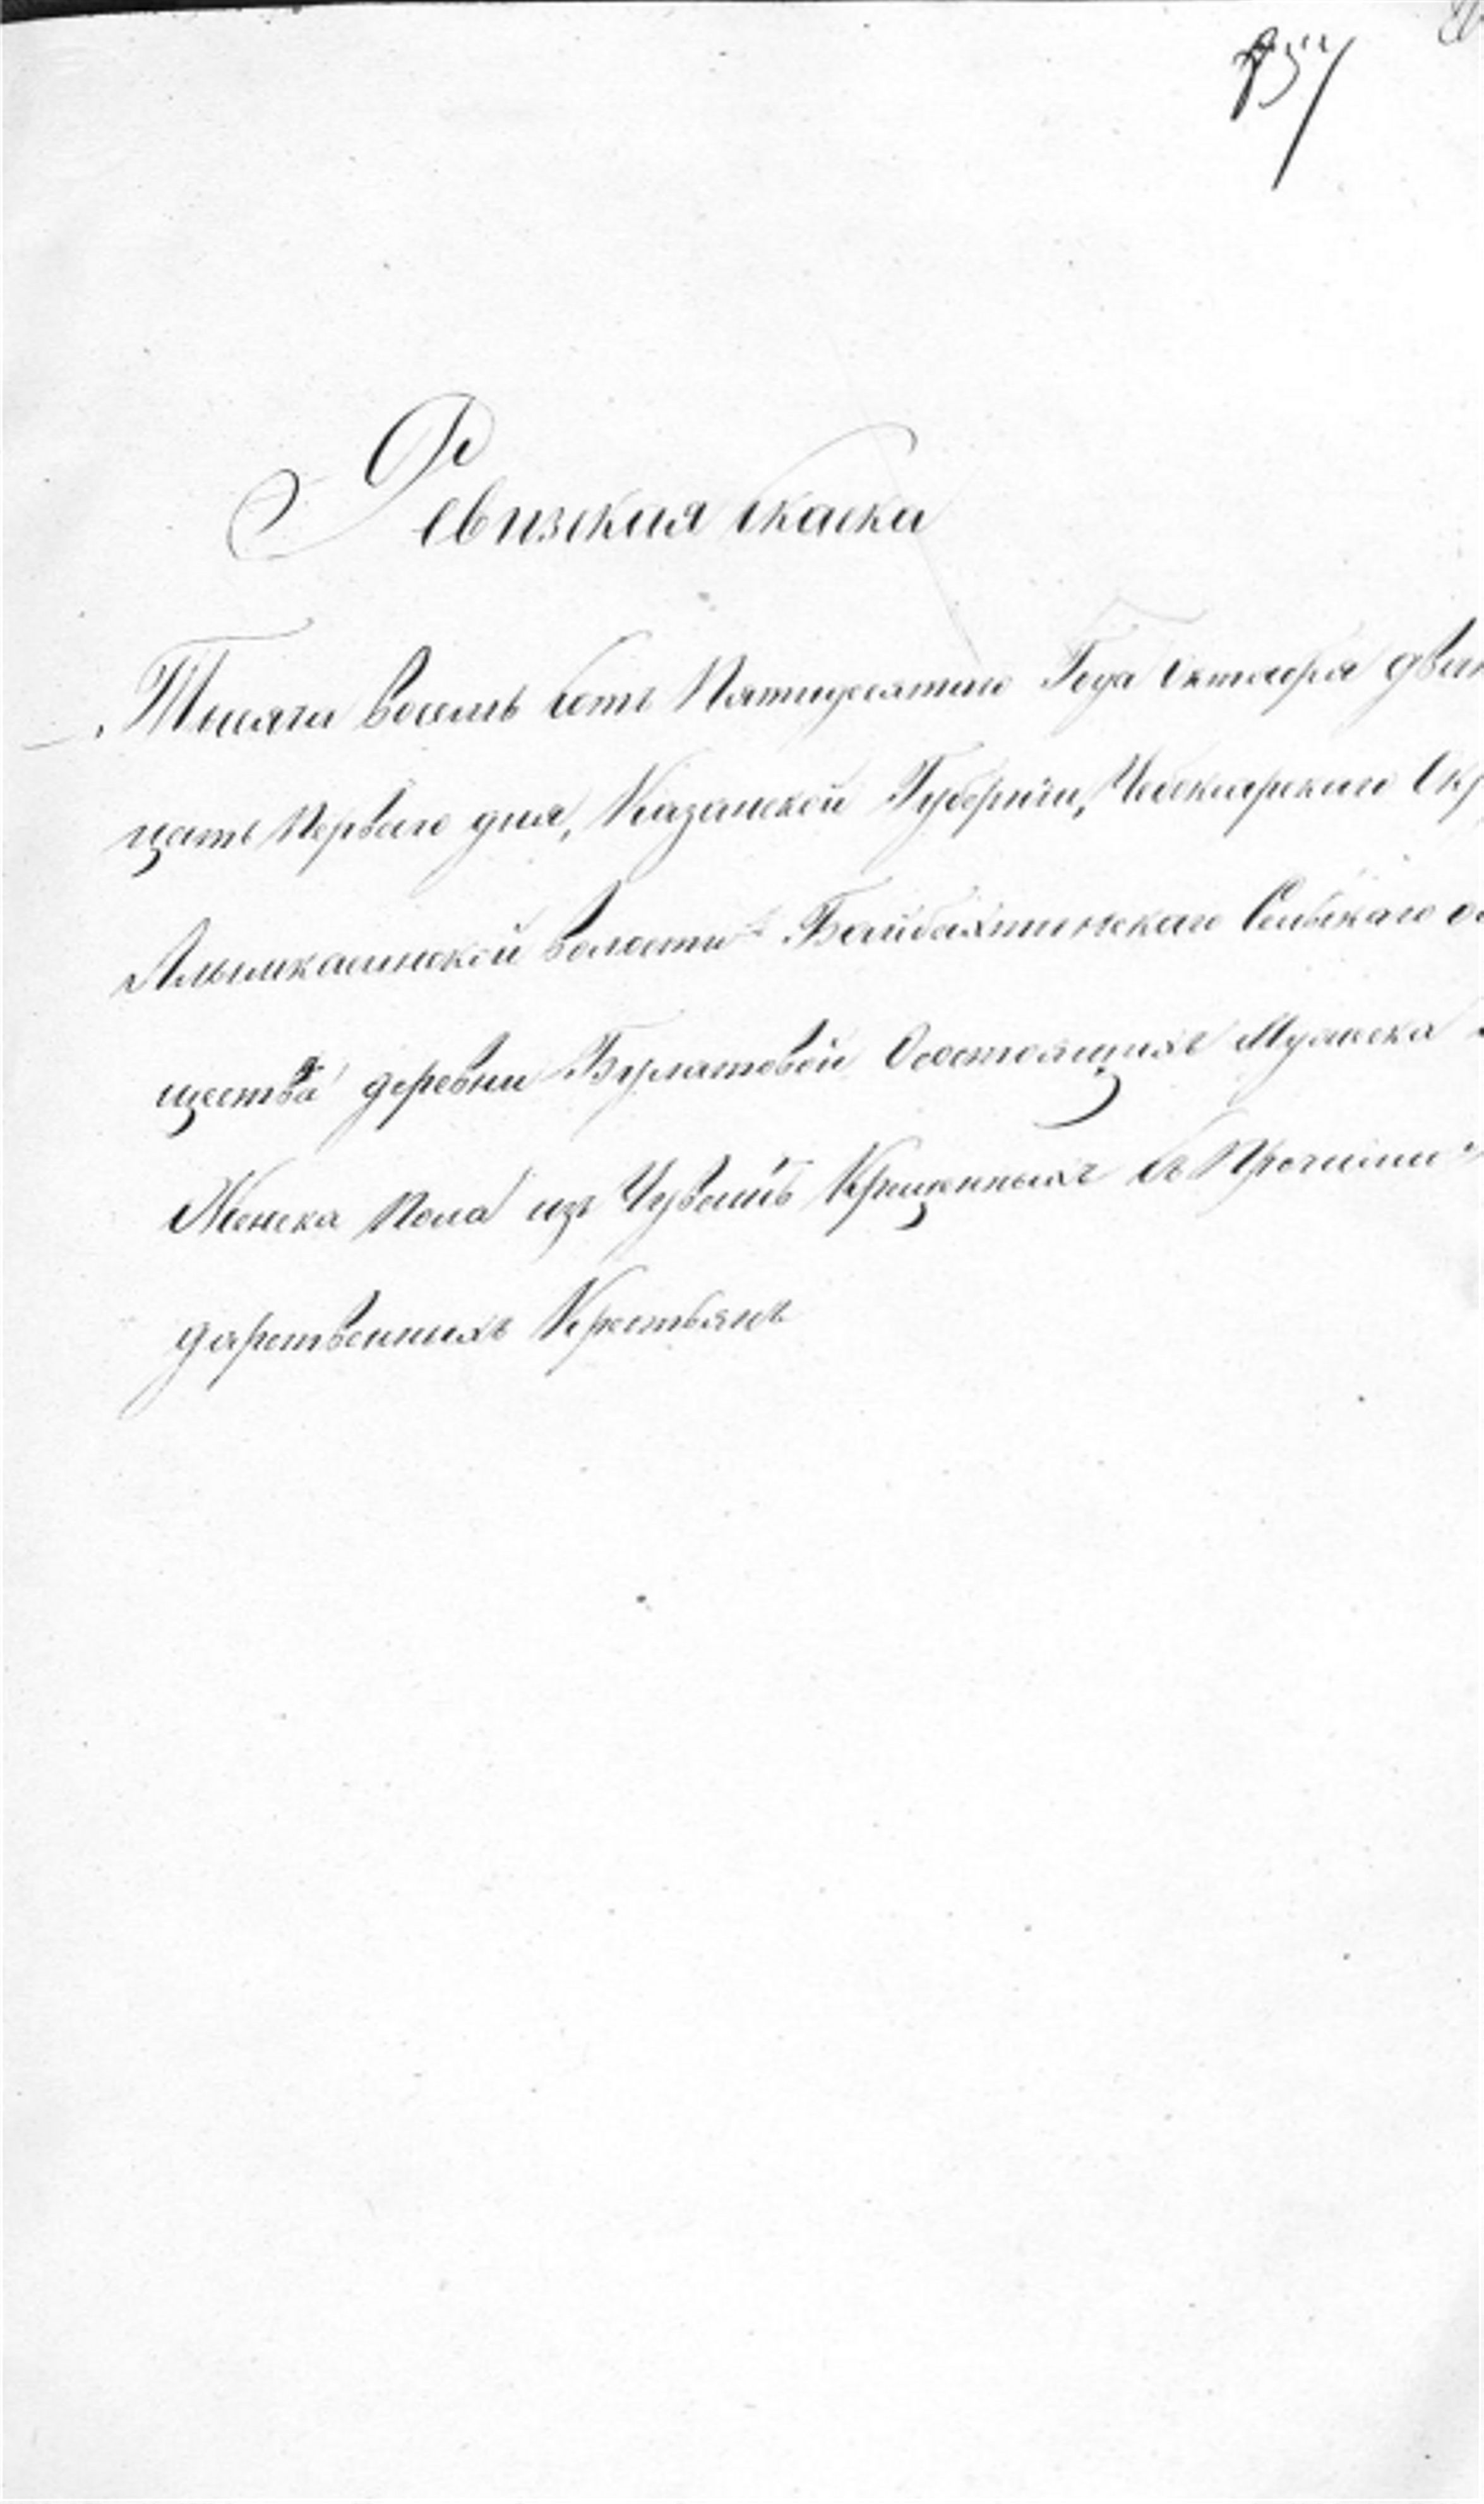 Ревизская скаска
Тысяча восемь сотъ Пятидесятого Года Октября дват
цать Первого дня, Казанской Губерніи, Чебокскарского Окр
Алымкасинской волости Байбахтинскаго Сельскаго об
щества деревни Булатовой О состоящихъ Мужеска и
Женска Пола изъ Чувашъ Крещенныхъ въ Прочими
дарственныхъ Крестьянъ